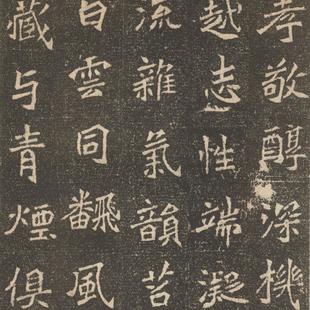 孝敬醇深機
越志性端凝
流雜氣韻苕
白雲同飜風
藏与青煙俱